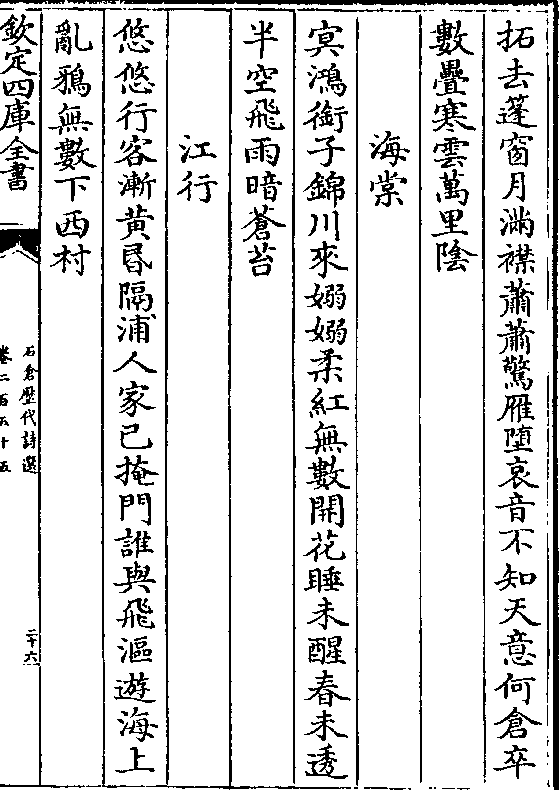 拓去蓬窗月滿襟蕭蕭驚雁墮哀音不知天意何倉卒
數疊寒雲萬里陰
海棠
㝠鴻銜子錦川來嫋嫋柔紅無數開花睡未醒春未透
半空飛雨暗蒼苔
江行
悠悠行客漸黄昬隔浦人家已掩門誰與飛漚遊海上
亂鴉無數下西村
欽定四庫全書
石倉歷代詩選
卷二百五十五
二十六